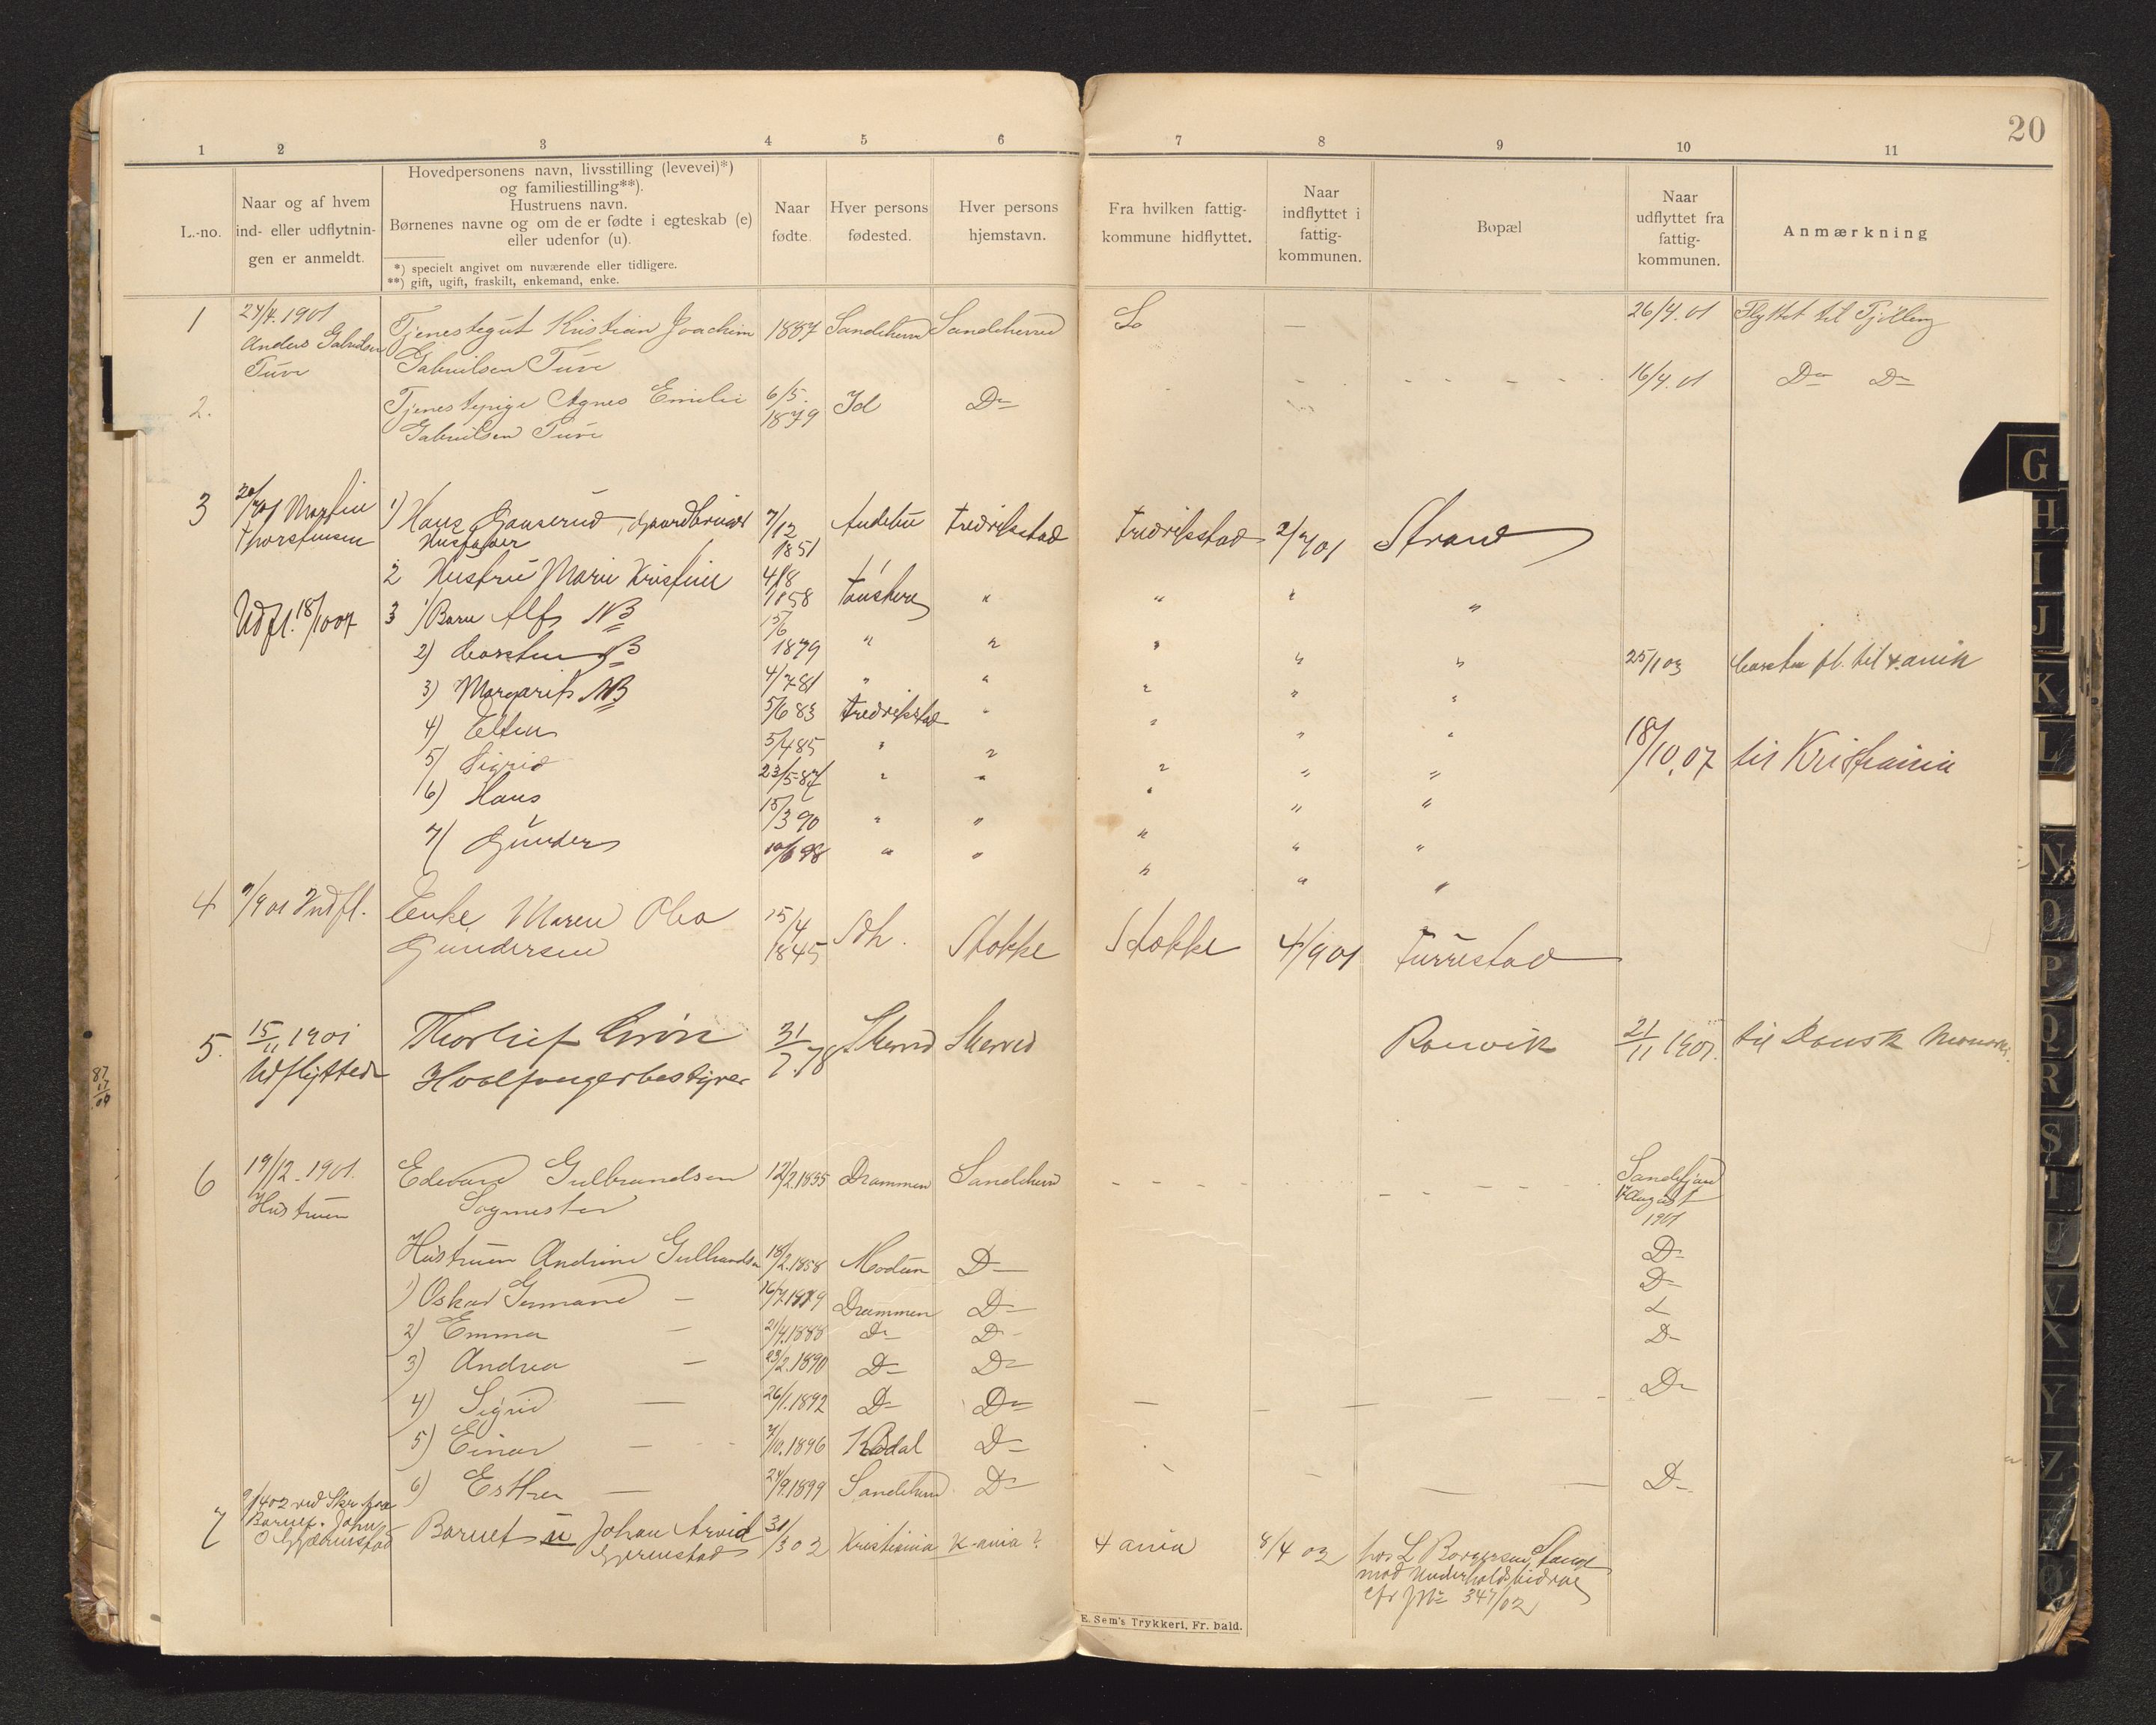 20
1 2 3 4 5 6 7 8 9 10 11
L.-no.
Naar og af hvem
ind- eller udflytnin-
gen er anmeldt.
Hovedpersonens navn, livsstilling (levevei)*)
og familiestilling**).
Hustruens navn.
Børnenes navne og om de er fødte i egteskab (e)
eller udenfor (u).
*) specielt angivet om nuværende eller tidligere.
**) gift, ugift, fraskilt, enkemand, enke.
Naar
fødte.
Hver persons
fødested.
Hver persons
hjemstavn.
Fra hvilken fattig-
kommune hidflyttet.
Naar
indflyttet i
fattig-
kommunen.
Bopæl
Naar
udflyttet fra
fattig-
kommunen.
Anmærkning
1 24/4. 1901 Tjenestegut Kristian Joachim 1887 Sandeherred Sandeherred 26/4. 01 Flyttet til Tjølling
Anders Gabrielsen
Tuve Gabrielsen Tuve
2. Tjenestepige Agnes Emilie 6/5. Id Do 16/4. 01 Do Do
Gabrielsen Tuve 1879
3 Martin 1) Hans Gauserud, Gaardbruger 7/12 Andebu Fredriksstad Fredriksstad 2/4 01 Strand
Thorstensen Husfader 1851
2 Hustru Marie Kristine 4/8 1858 Tønsberg " " " "
Udfl. 18/10 07 3 1) Barn Alf NB 15/6
2) Carsten NB 1879 " " " " " 25/1 03 Carsten fl. til
3) Margarit NB 4/7 81 " " " " "
4) 5/6 83 Fredriksstad " " " "
5) Sigrid 5/4 85 " " " " " 18/10.07 til Kristiania
6) Hans 23/5 87 " " " " "
15/3 90 " " " " "
7) Gunder 10/6 98 " " " " "
4 7/9 01 Indfl. Enke Maren Olea 15/4 Sdh. Stokke Stokke 4/9 01 Furustad
Gundersen 1845
5. 15/11 1901 Thorleif Grøn 31/7.78 Sherred Sherred Ranvik 21/11 1901. til Dansk
Udflyttede Hvalfangerbestyrer
6 19/12. 1901. Edvard Gulbrandsen 12/2.1855 Drammen Sandeherred Sandefjord
Hustruen Sagmester August
1901
Hustruen Andrine Gulbrandsen 18/2.1858 Modum Do Do
1) Oskar Germand — 16/7.1879 Drammen Do Do
2) Emma — 21/4.1888 Do Do
3) Andrea — 23/2.1890 Do Do Do
4) Sigrid — 26/1.1892 Do Do Do
5) Einar — 7/10.1896 Kodal Do
6) Esther — 24/9.1899 Sandeherred Do Do
7 9/4 02 ved Skr. fra
Barnet. John Barnet u Johan Arvid 31/3 02 Kristiania K-ania? 8/4 02 hos L Borgersen,
Gjermstad mod Underholdsbidrag
cfr JNr 347/02
E. Sem's Trykkeri, Fr. hald.
G
H
I
J
K
L
N
O
P
Q
R
S
T
U
V
X
Y
Z
Ø